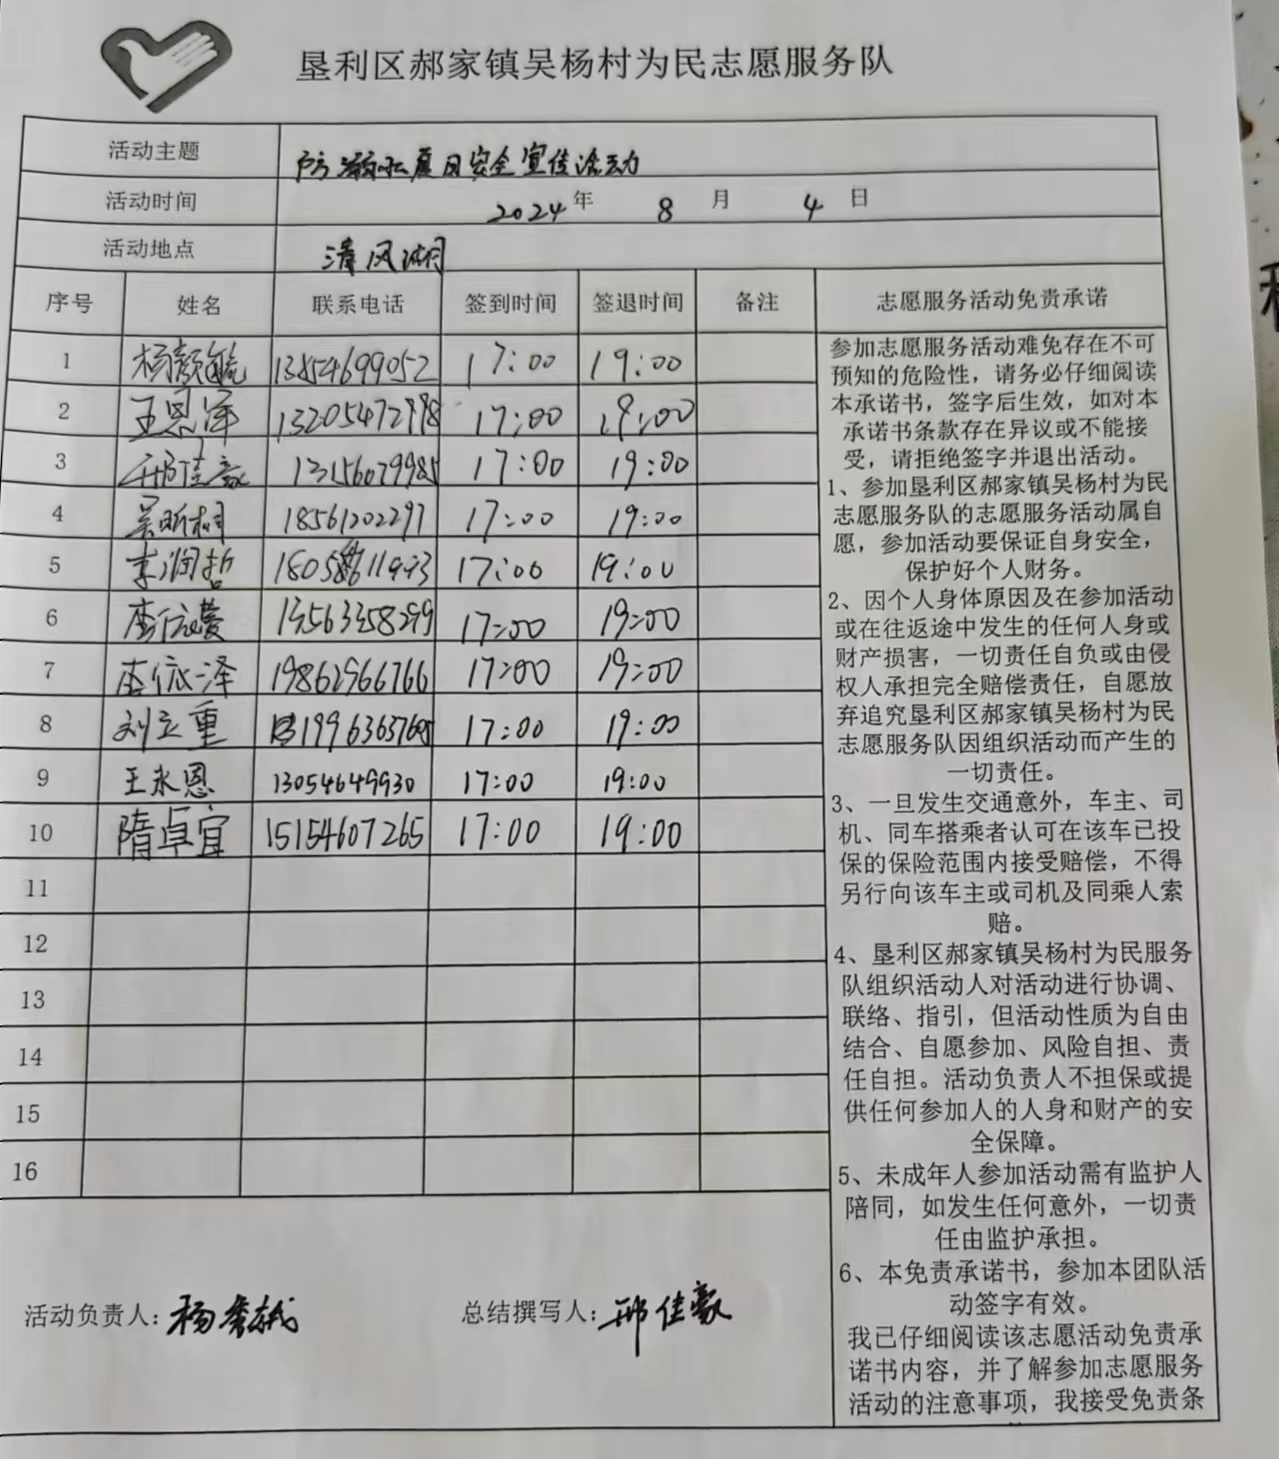 垦利区郝家镇吴杨村为民志愿服务队
活动主题 防溺水夏日安全宣传活动
活动时间 2024年 8 月 4 日
活动地点 清风湖
序号 姓名 联系电话 签到时间 签退时间 备注 志愿服务活动免责承诺
1 杨颜毓 13854699052 17:00 19:00
2 王恩泽 17:00 19:00
3 邢佳豪 17:00 19:00
4 吴昕桐 18561202297 17:00 19:00
5 李润哲 17:00 19:00
6 李 17:00 19:00
7 李依泽 19862966766 17:00 19:00
8 刘立重 17:00 19:00
9 王永恩 13054649930 17:00 19:00
10 隋卓宜 15154607265 17:00 19:00
11
12
13
14
15
16
参加志愿服务活动难免存在不可
预知的危险性，请务必仔细阅读
本承诺书，签字后生效，如对本
承诺书条款存在异议或不能接
受，请拒绝签字并退出活动。
1、参加垦利区郝家镇吴杨村为民
志愿服务队的志愿服务活动属自
愿，参加活动要保证自身安全，
保护好个人财务。
2、因个人身体原因及在参加活动
或在往返途中发生的任何人身或
财产损害，一切责任自负或由侵
权人承担完全赔偿责任，自愿放
弃追究垦利区郝家镇吴杨村为民
志愿服务队因组织活动而产生的
一切责任。
3、一旦发生交通意外，车主、司
机、同车搭乘者认可在该车已投
保的保险范围内接受赔偿，不得
另行向该车主或司机及同乘人索
赔。
4、垦利区郝家镇吴杨村为民服务
队组织活动人对活动进行协调、
联络、指引，但活动性质为自由
结合、自愿参加、风险自担、责
任自担。活动负责人不担保或提
供任何参加人的人身和财产的安
全保障。
5、未成年人参加活动需有监护人
陪同，如发生任何意外，一切责
任由监护承担。
6、本免责承诺书，参加本团队活
动签字有效。
我已仔细阅读该志愿活动免责承
诺书内容，并了解参加志愿服务
活动的注意事项，我接受免责条
活动负责人：杨 总结撰写人：邢佳豪